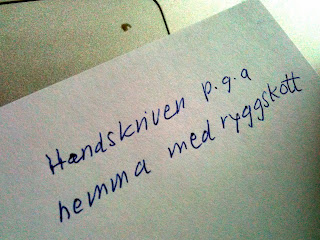 Handskriven p.g.a
hemma med ryggskott